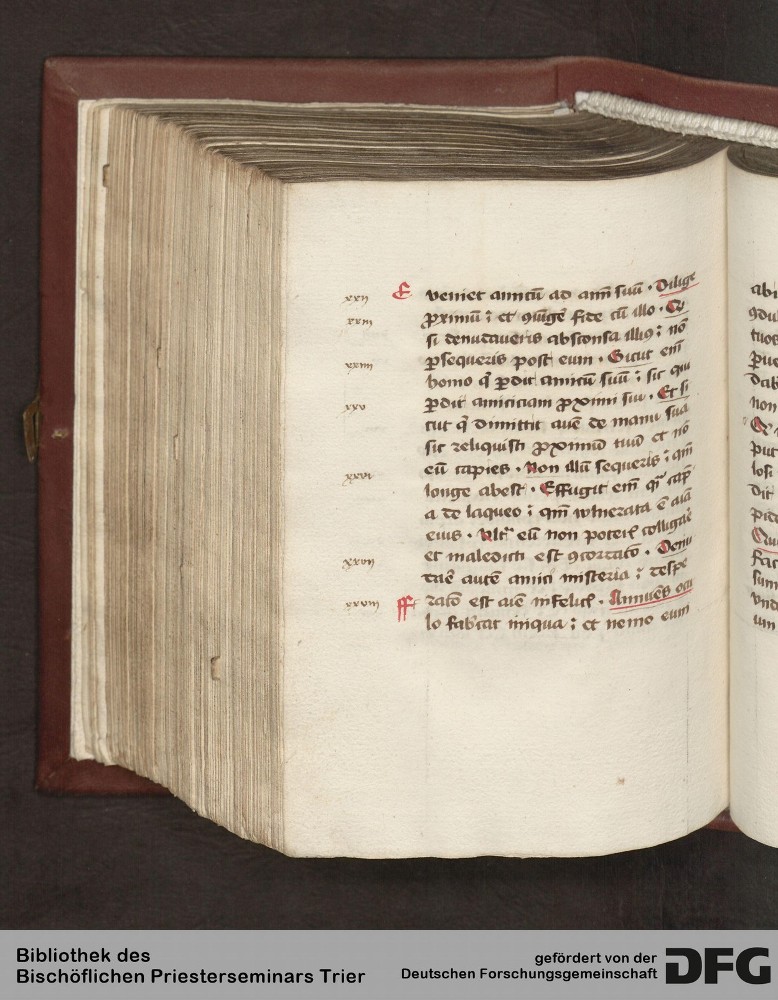 xxii E veniet amicū ad amī suū · Dilige
xxiii ꝓximū ; et ꝯiūge͛ fide cū illo · Qꝫ
si denudaueris absconsa illiꝰ ; nō
xxiiii ꝑsequeris post eum · Sicut em̄
homo q̄ ꝑdit amicū suū ; sic qui
xxv ꝑdit amiciciam ꝓximi sui · Et si
cut q̄ dimittit auē de manu sua
sic reliquisti ꝓximū tuū et nō
xxvi eū capies · Non illū sequeris ; qm̄
longe abest · Effugit em̄ qͣ capͤ
a de laqueo ; qm̄ wlnerata ē aīa
eius · Vltͣ eū non poteris colligāe
xxvii et maledicti est ꝯcordatō · Denu
dāe autē amici misteria ; despe
xxviii ff ratō est aīe infelicꝭ · Annuēs ocu
lo fabͥcat iniqua ; et nemo eum
Bibliothek des
Bischöflichen Priesterseminars Trier
gefördert von der
Deutschen Forschungsgemeinschaft
DFG